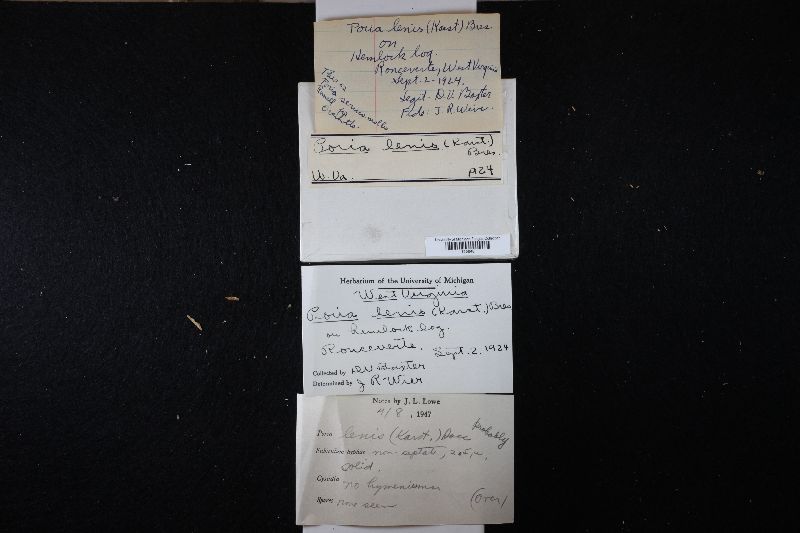 Poria lenis (Karst) Bres.
on
Hemlock log.
Ronceverte, West Virginia
Sept. 2 - 1924.
Legit. D.V. Baxter
Fide: J. R. Weir.
This is
Poria mollis
Poria lenis (Karst.)
Bres.
W. Va. 1924
University of Michigan Fungus Collection
Herbarium of the University of Michigan
West Virginia
Poria lenis (Karst.) Bres
on hemlock log.
Ronceverte. Sept. 2. 1924
Collected by D V Baxter
Determined by J R Weir
Notes by J. L. Lowe
4/8, 1947
Poria lenis (Karst.) probably
Subiculum hyphae non-septate,
solid.
Cystidia no hymenium
Spores none seen (over)